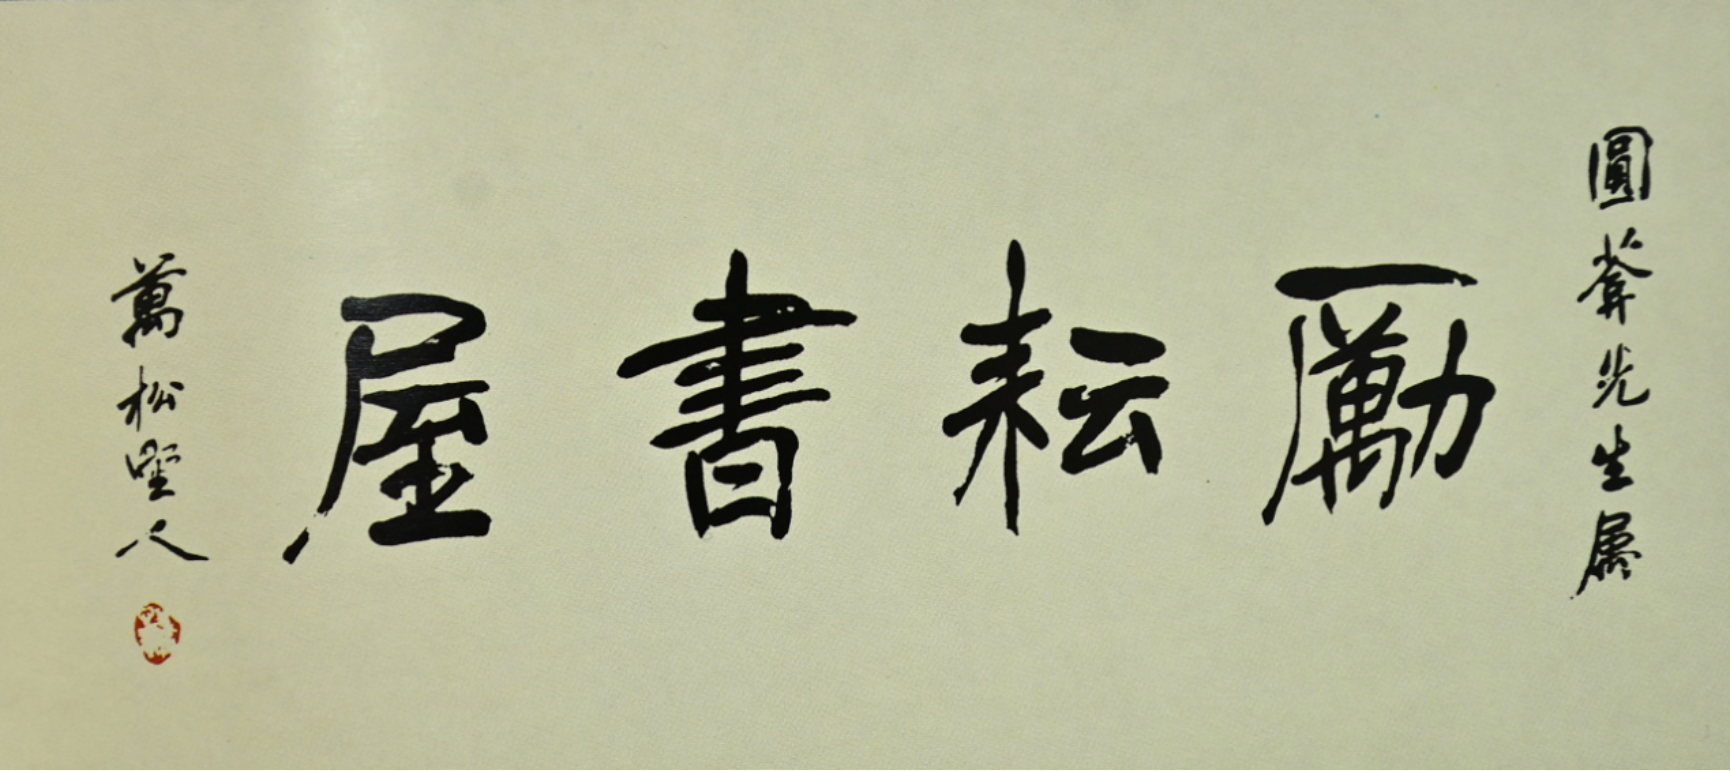 圓菴先生屬
勵耘書屋
萬松野人